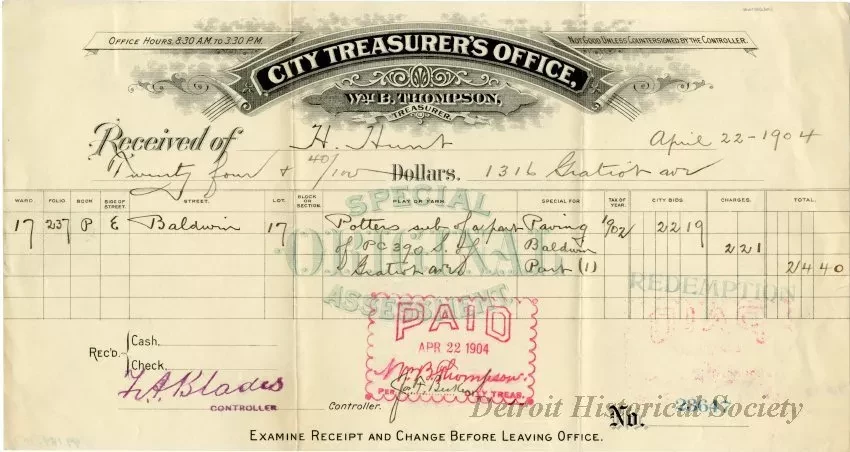 OFFICE HOURS, 8:30 A.M. TO 3:30 P.M.
NOT GOOD UNLESS COUNTERSIGNED BY THE CONTROLLER.
CITY TREASURER'S OFFICE,
WM. B. THOMPSON,
TREASURER.
Received of H. Hunt April 22-1904
Twenty four & 40/100 Dollars. 1316 Gratiot ave
WARD. FOLIO. BOOK. SIDE OF STREET. STREET. LOT. BLOCK OR SECTION. PLAT OR FARM. SPECIAL FOR TAX OF YEAR. CITY BIDS. CHARGES. TOTAL.
SPECIAL
ORIGINAL
ASSESSMENT.
17 237 P E Baldwin 17 Potters sub of a part Paving 1902 22 19
of PC 390 S. of Baldwin 2 21
Gratiot ave Part (1) 24 40
REDEMPTION
PAID
APR 22 1904
Wm. B. Thompson.
PER CITY TREAS.
REC'D.
Cash.
Check.
F.A. Blades
CONTROLLER
Controller.
No.
Detroit Historical Society
EXAMINE RECEIPT AND CHANGE BEFORE LEAVING OFFICE.